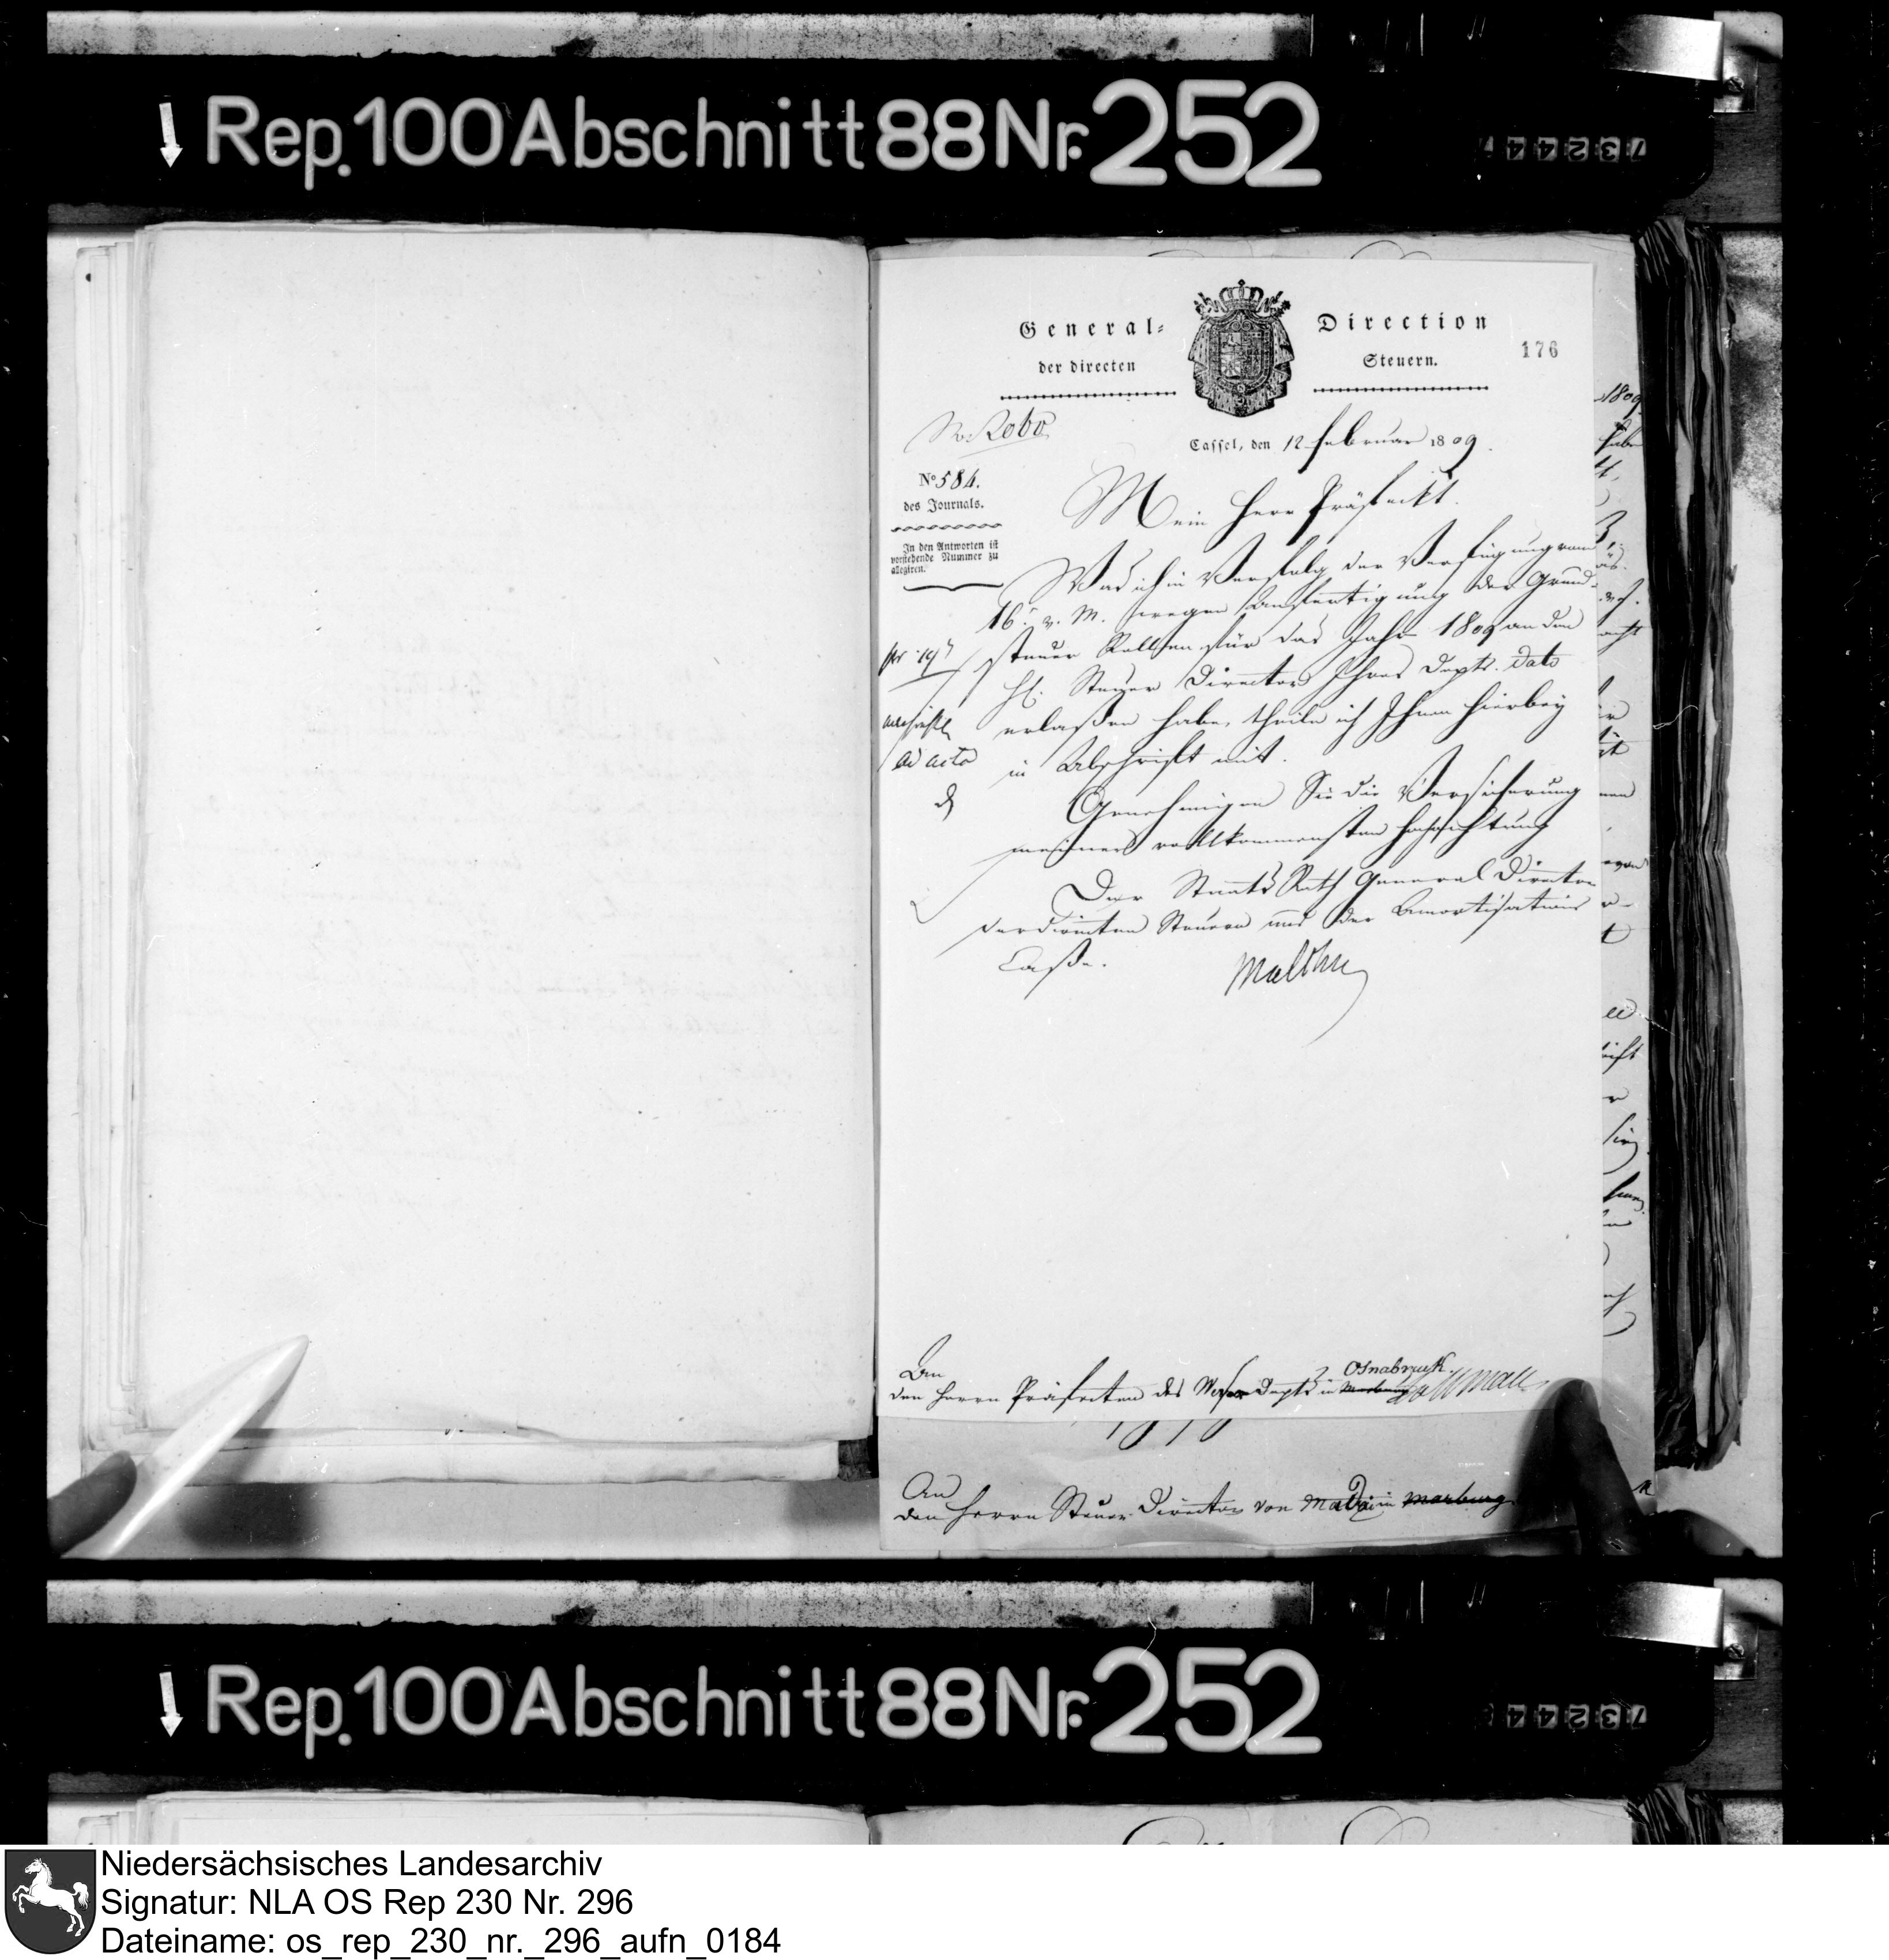 Rep. 100 Abschnitt 88 Nr. 252
73244
General- Direction
der directen Steuern.
176
Cassel, den 12 Februar 1809.
No 584.
des Journals.
In den Antworten ist
vorstehende Nummer zu
allegiren.
Mein Herr Präfeckt.
Was ich in Verfolg der Verfügung vom
16. v. M. wegen Ausfertigung der Grund-
steuer Rollen für das Jahr 1809 an den
H. Steuer Director Ihres Depts. dato
erlaßen habe, theile ich Ihnen hierbey
in Abschrift mit.
ad acta
Genehmigen Sie die Versicherung
meiner vollkommensten Hochachtung
Der Staats Rath General Director
der directen Steuern und der Amortisations
Caße.
Malchus
An
den Herrn Präfecten des Weser Depts in Marburg Osnabruck
An
den Herrn Steuer Director von in Marburg
Rep. 100 Abschnitt 88 Nr. 252
73244
Niedersächsisches Landesarchiv
Signatur: NLA OS Rep 230 Nr. 296
Dateiname: os_rep_230_nr._296_aufn_0184